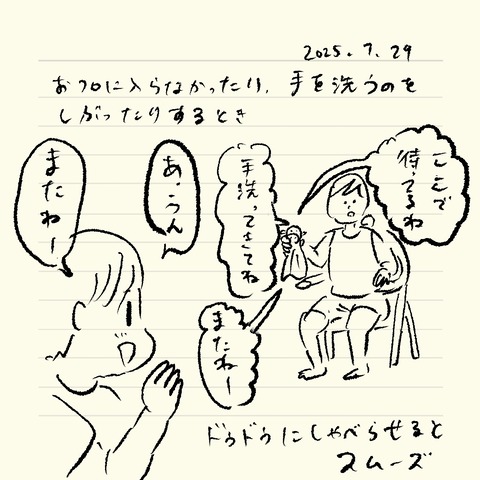 2025.7.29
おフロに入らなかったり、手を洗うのを
しぶったりするとき
ここで
待ってるね
手洗ってきてね
あ、うん
またねー
またねー
ドゥドゥにしゃべらせると
スムーズ